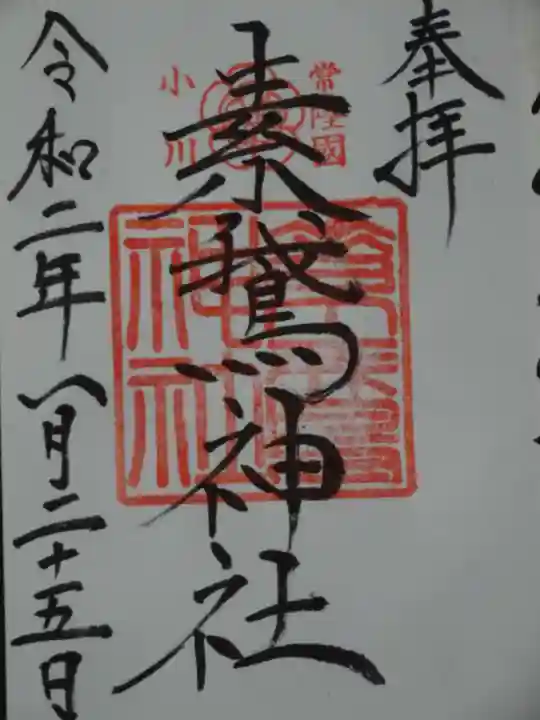 奉拝
常陸國
小川
素鵞神社
令和二年八月二十五日